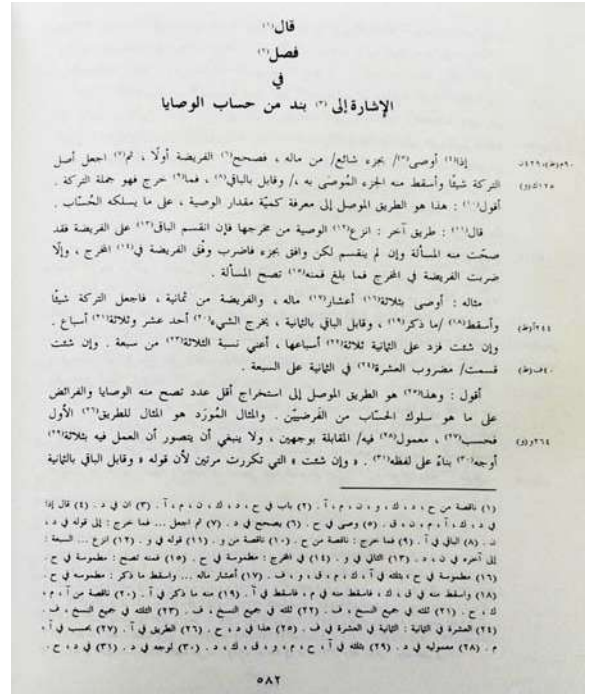 قال(١)
فصل(٢)
في
الإشارة إلى(٣) بند من حساب الوصايا
إذا(٤) أوصى(٥)/ بجزء شائع/ من ماله ، فصحح(٦) الفريضة أولًا ، ثم(٧) اجعل أصل
التركة شيئًا وأسقط منه الجزء المُوصَى به ،/ وقابل بالباقي(٨) ، فما(٩) خرج فهو جملة التركة .
١٢٥ك(و)
أقول(١٠) : هذا هو الطريق الموصل إلى معرفة كميّة مقدار الوصية ، على ما يسلكه الحُسّاب .
قال(١١) : طريق آخر : انزع(١٢) الوصية من مخرجها فإن انقسم الباقي(١٣) على الفريضة فقد
صحّت منه المسألة وإن لم ينقسم لكن وافق بجزء فاضرب وفْق الفريضة في(١٤) المخرج ، وإلّا
ضربت الفريضة في المخرج فما بلغ فمنه(١٥) تصح المسألة .
مثاله : أوصى بثلاثة(١٦) أعشار(١٧) ماله ، والفريضة من ثمانية ، فاجعل التركة شيئًا
وأسقط(١٨) /ما ذكر(١٩) ، وقابل الباقي بالثمانية ، يخرج الشيء(٢٠) أحد عشر وثلاثة(٢١) أسباع .
٢٤٤آ(ظ)
وإن شئت فزد على الثمانية ثلاثة(٢٢) أسباعها ، أعني نسبة الثلاثة(٢٣) من سبعة . وإن شئت
قسمت/ مضروب العشرة(٢٤) في الثمانية على السبعة .
٤٠ف(ظ)
أقول : وهذا(٢٥) هو الطريق الموصل إلى استخراج أقل عدد تصح منه الوصايا والفرائض
على ما هو سلوك الحسّاب من الفرضيّين . والمثال المُورَد هو المثال للطريق(٢٦) الأول
فحسب(٢٧) ، معمول(٢٨) فيه/ المقابلة بوجهين ، ولا ينبغي أن يتصور أن العمل فيه بثلاثة(٢٩)
٢٦٤و(و)
أوجه(٣٠) بناءً على لفظه(٣١) . « وإن شئت » التي تكررت مرتين لأن قوله « وقابل الباقي بالثمانية
(١) ناقصة من ح ، د ، ك ، و ، ن ، م ، آ . (٢) باب في ح ، د ، ك ، ن ، م ، آ . (٣) ان في د . (٤) قال إذا
في د ، ك ، آ ، م ، ن ، ق . (٥) وصى في ح . (٦) يصحح في د . (٧) ثم اجعل ... فما خرج : إلى قوله في د ،
ن . (٨) الباقي في آ . (٩) فما خرج : ناقصة من ح . (١٠) ناقصة من و . (١١) قوله في و . (١٢) انزع ... السبعة :
إلى آخره في ن ، د . (١٣) الثاني في و . (١٤) في المخرج : مطموسة في ح . (١٥) فمنه تصح : مطموسة في ح .
(١٦) مطموسة في ح ، بثلثه في آ ، ك ، م ، ق ، و ، ف . (١٧) أعشار ماله ... واسقط ما ذكر : مطموسه في ح .
(١٨) واسقط منه في ق ، ك ، فاسقط منه في م ، فاسقط في آ . (١٩) منه ما ذكر في آ . (٢٠) ناقصة من آ ، م ،
ك ، ح . (٢١) ثلثه في جميع النسخ ، ف . (٢٢) ثلثه في جميع النسخ ، ف . (٢٣) الثلثه في جميع النسخ ، ف .
(٢٤) العشرة في الثمانية : الثمانية في العشرة في ف . (٢٥) هذا في د ، ح . (٢٦) الطريق في آ . (٢٧) بحسب في آ ،
م . (٢٨) معموليه في د . (٢٩) بثلثه في آ ، ح ، م ، و ، ق ، ك ، د . (٣٠) لوجه في د . (٣١) في د ، ح .
٥٨٢